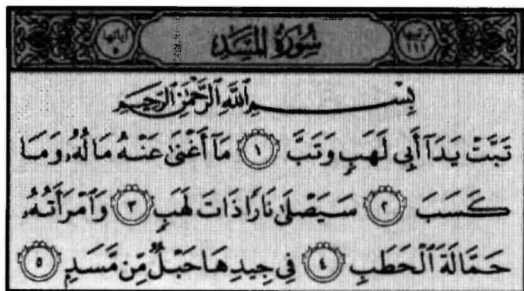 ترتيبها ١١١ سُورَةُ المَسَد آياتها ٥
بِسْمِ اللَّهِ الرَّحْمَٰنِ الرَّحِيمِ
تَبَّتْ يَدَآ أَبِى لَهَبٍ وَتَبَّ ١ مَآ أَغْنَىٰ عَنْهُ مَالُهُۥ وَمَا
كَسَبَ ٢ سَيَصْلَىٰ نَارًا ذَاتَ لَهَبٍ ٣ وَٱمْرَأَتُهُۥ
حَمَّالَةَ ٱلْحَطَبِ ٤ فِى جِيدِهَا حَبْلٌ مِّن مَّسَدٍۭ ٥